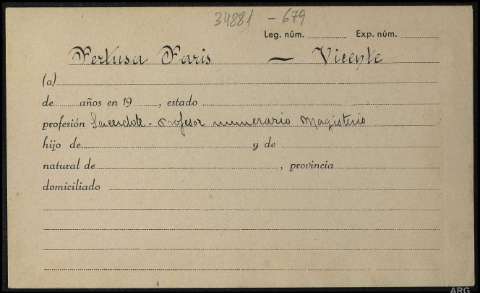 34881 - 679
Leg. núm. Exp. núm.
Pertusa Paris — Vicente
(a)
de años en 19 , estado
profesión Sacerdote - Profesor numerario Magisterio
hijo de y de
natural de , provincia
domiciliado
ARG